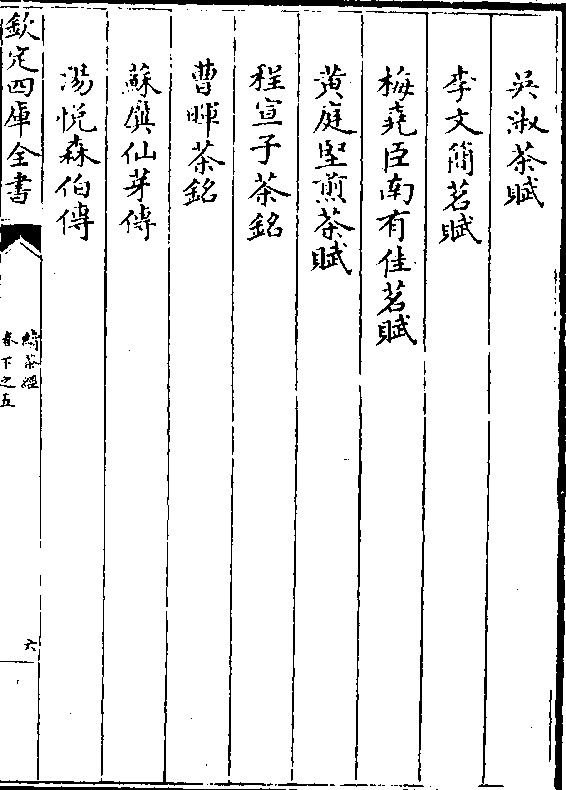 吳淑茶賦
李文簡茗賦
梅堯臣南有佳茗賦
黄庭堅煎茶賦
程宣子茶銘
曹暉茶銘
蘇廙仙芽傳
湯悅森伯傳
欽定四庫全書
續茶經
卷下之五
六